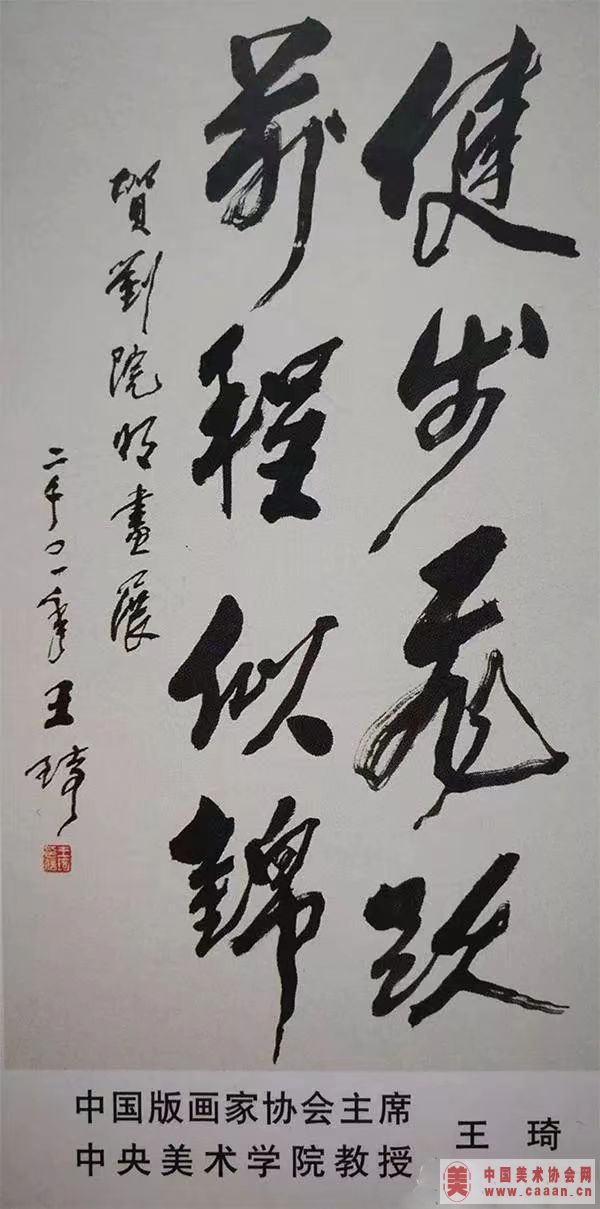 健步飛跃
前程似錦
賀劉院畫展
二千〇一年王琦
中国版画家协会主席
中央美术学院教授
王琦
美
中国美术协会网
www.caaan.cn